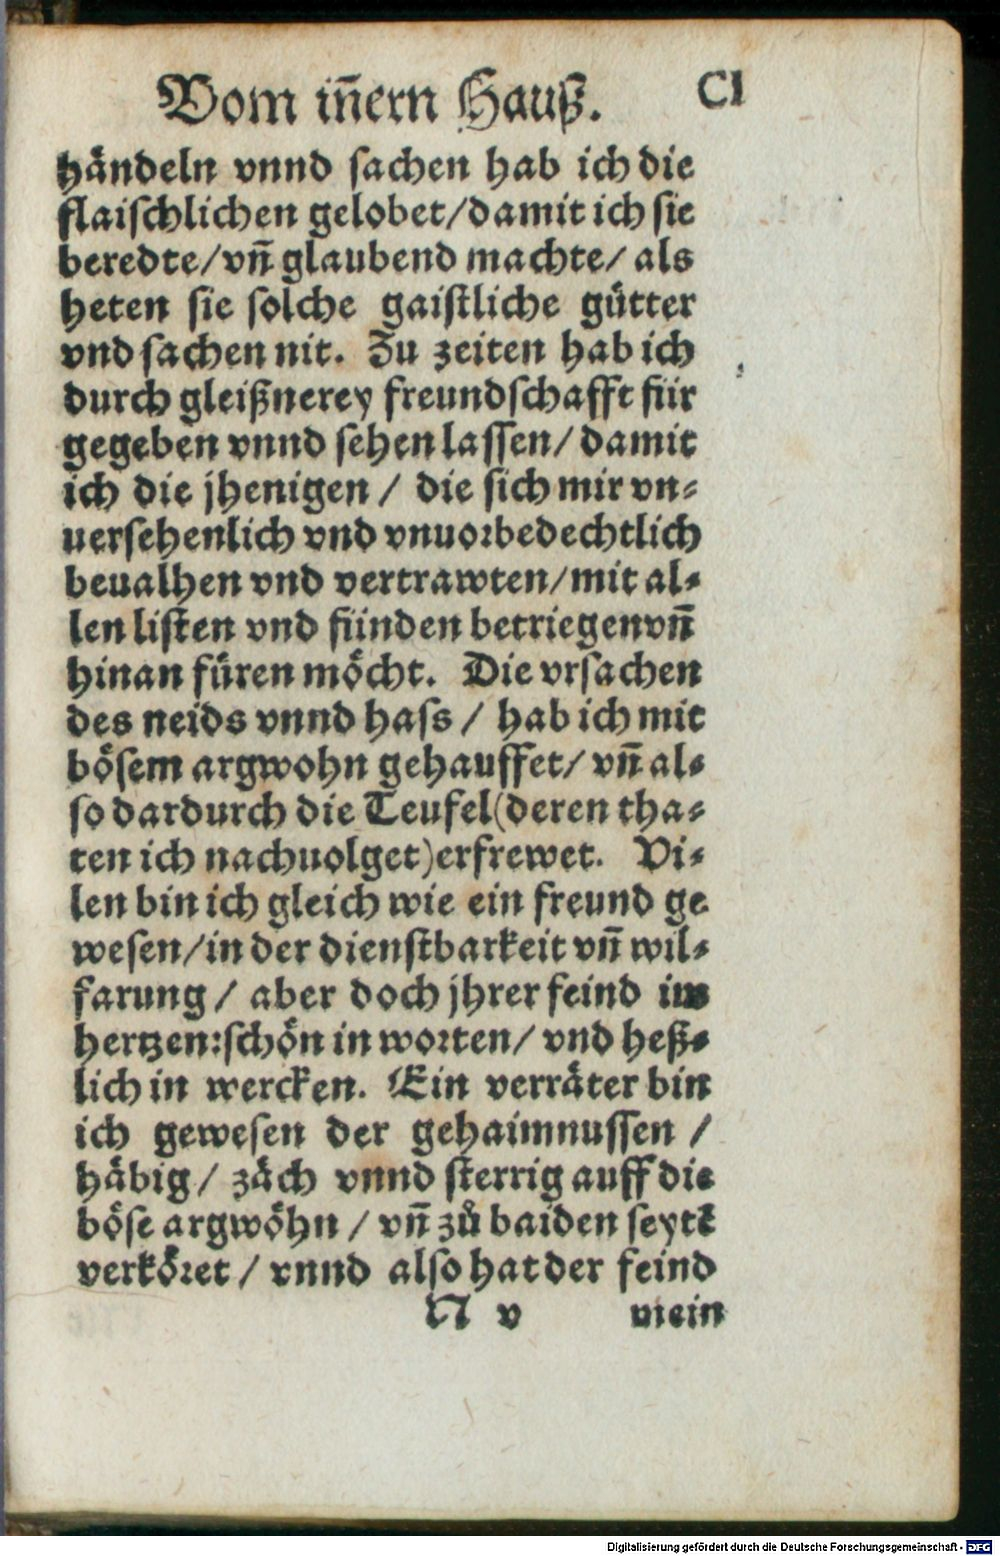 Vom iñern Hauß. CI
händeln vnnd sachen hab ich die
flaischlichen gelobet/damit ich sie
beredte/vñ glaubend machte/ als
heten sie solche gaistliche gütter
vnd sachen nit. Zu zeiten hab ich
durch gleißnerey freundschafft für
gegeben vnnd sehen lassen/ damit
ich die jhenigen / die sich mir vn⸗
uersehenlich vnd vnuorbedechtlich
beualhen vnd vertrawten/mit al⸗
len listen vnd fünden betriegen vñ
hinan füren möcht. Die vrsachen
des neids vnnd hass / hab ich mit
bösem argwohn gehauffet/ vñ al⸗
so dardurch die Teufel(deren tha⸗
ten ich nachuolget)erfrewet. Vi⸗
len bin ich gleich wie ein freund ge
wesen/in der dienstbarkeit vñ wil⸗
farung / aber doch jhrer feind im
hertzen:schön in worten/ vnd heß⸗
lich in wercken. Ein verräter bin
ich gewesen der gehaimnussen /
häbig/ zäch vnnd sterrig auff die
böse argwöhn / vñ zů baiden seytē
verköret / vnnd also hat der feind
N v mein
Digitalisierung gefördert durch die Deutsche Forschungsgemeinschaft - DFG